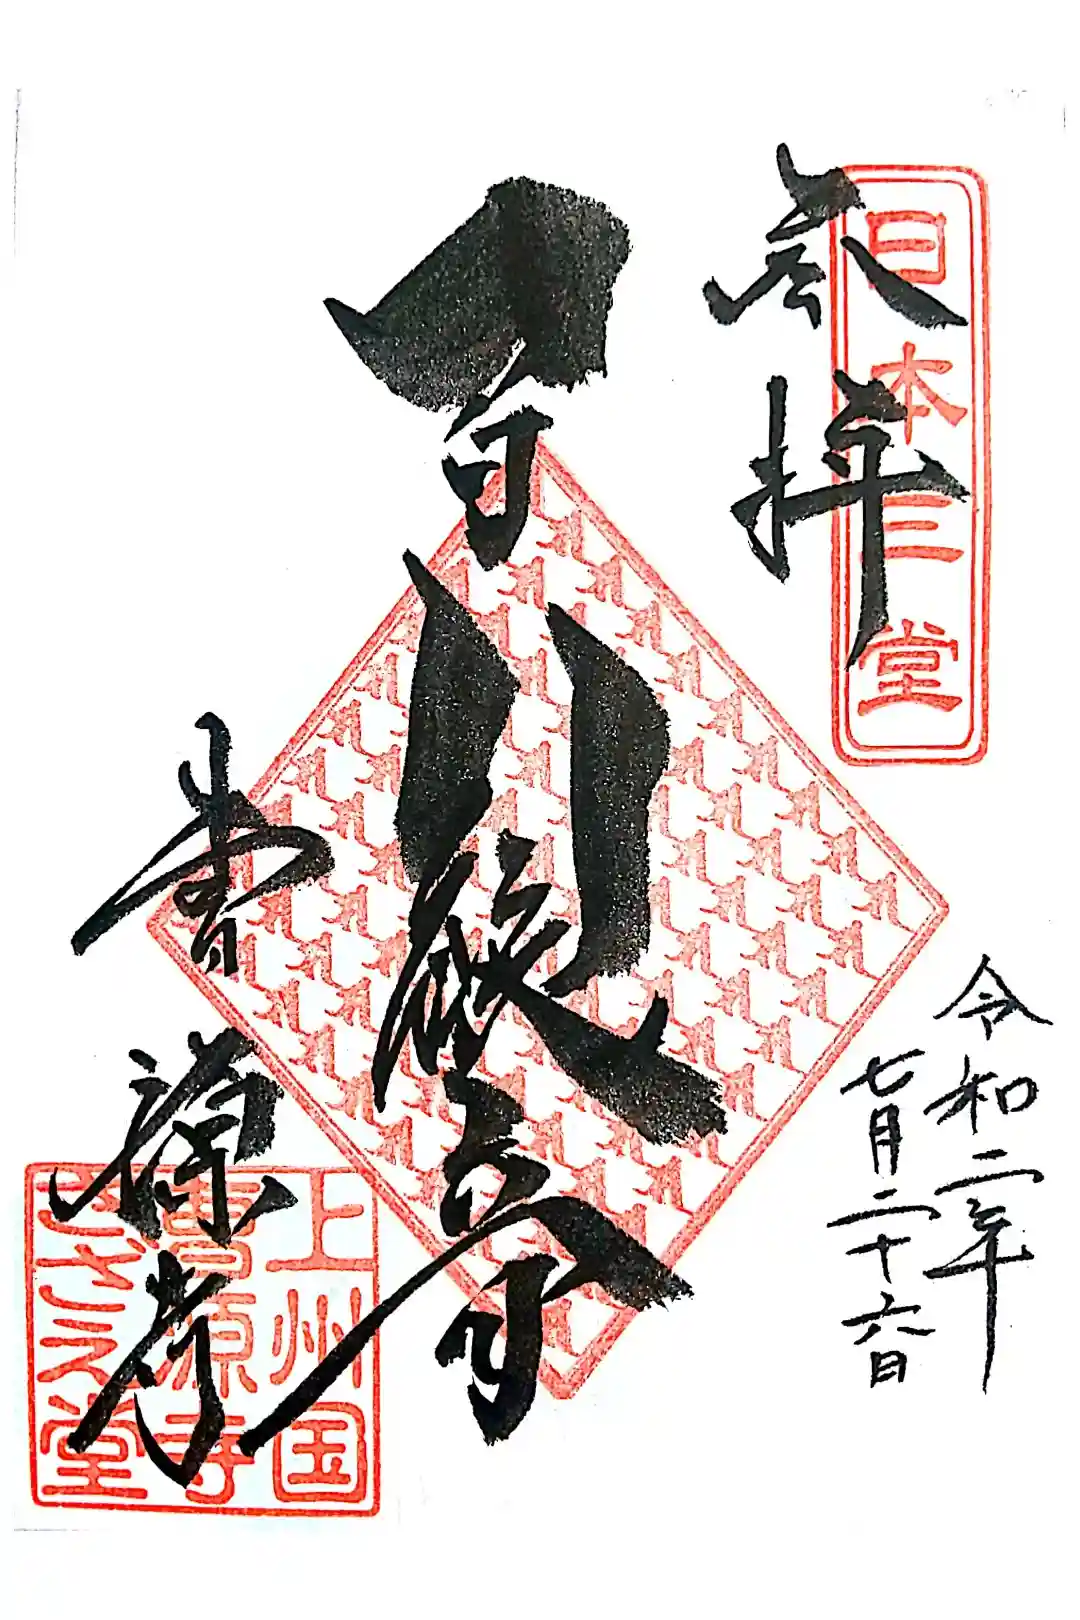 日本三堂
奉拝
令和二年
七月二十六日
百八観音
曹源寺
上州国
曹源寺
さざえ堂